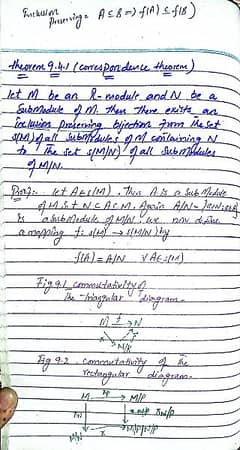 Inclusion
preserving = A ⊆ B => f(A) ⊆ f(B)
Theorem 9.4.1 (correspondence theorem)
Let M be an R-module and N be a
Submodule of M. Then there exists an
inclusion preserving bijection from the set
S(M) of all submodules of M containing N
to the set S(M/N) of all submodules
of M/N.
Proof:- Let A ∈ S(M). Then A is a sub Module
of M s.t N ⊆ A ⊆ M. Again A/N =
is a submodule of M/N. we now define
a mapping f: S(M) → S(M/N) by
f(A) = A/N ∀ A ∈ S(M)
Fig 9.1 commutativity of
the triangular diagram.
M f → N
M/P
Fig 9.2. commutativity of the
rectangular diagram.
M → M/P
M/N